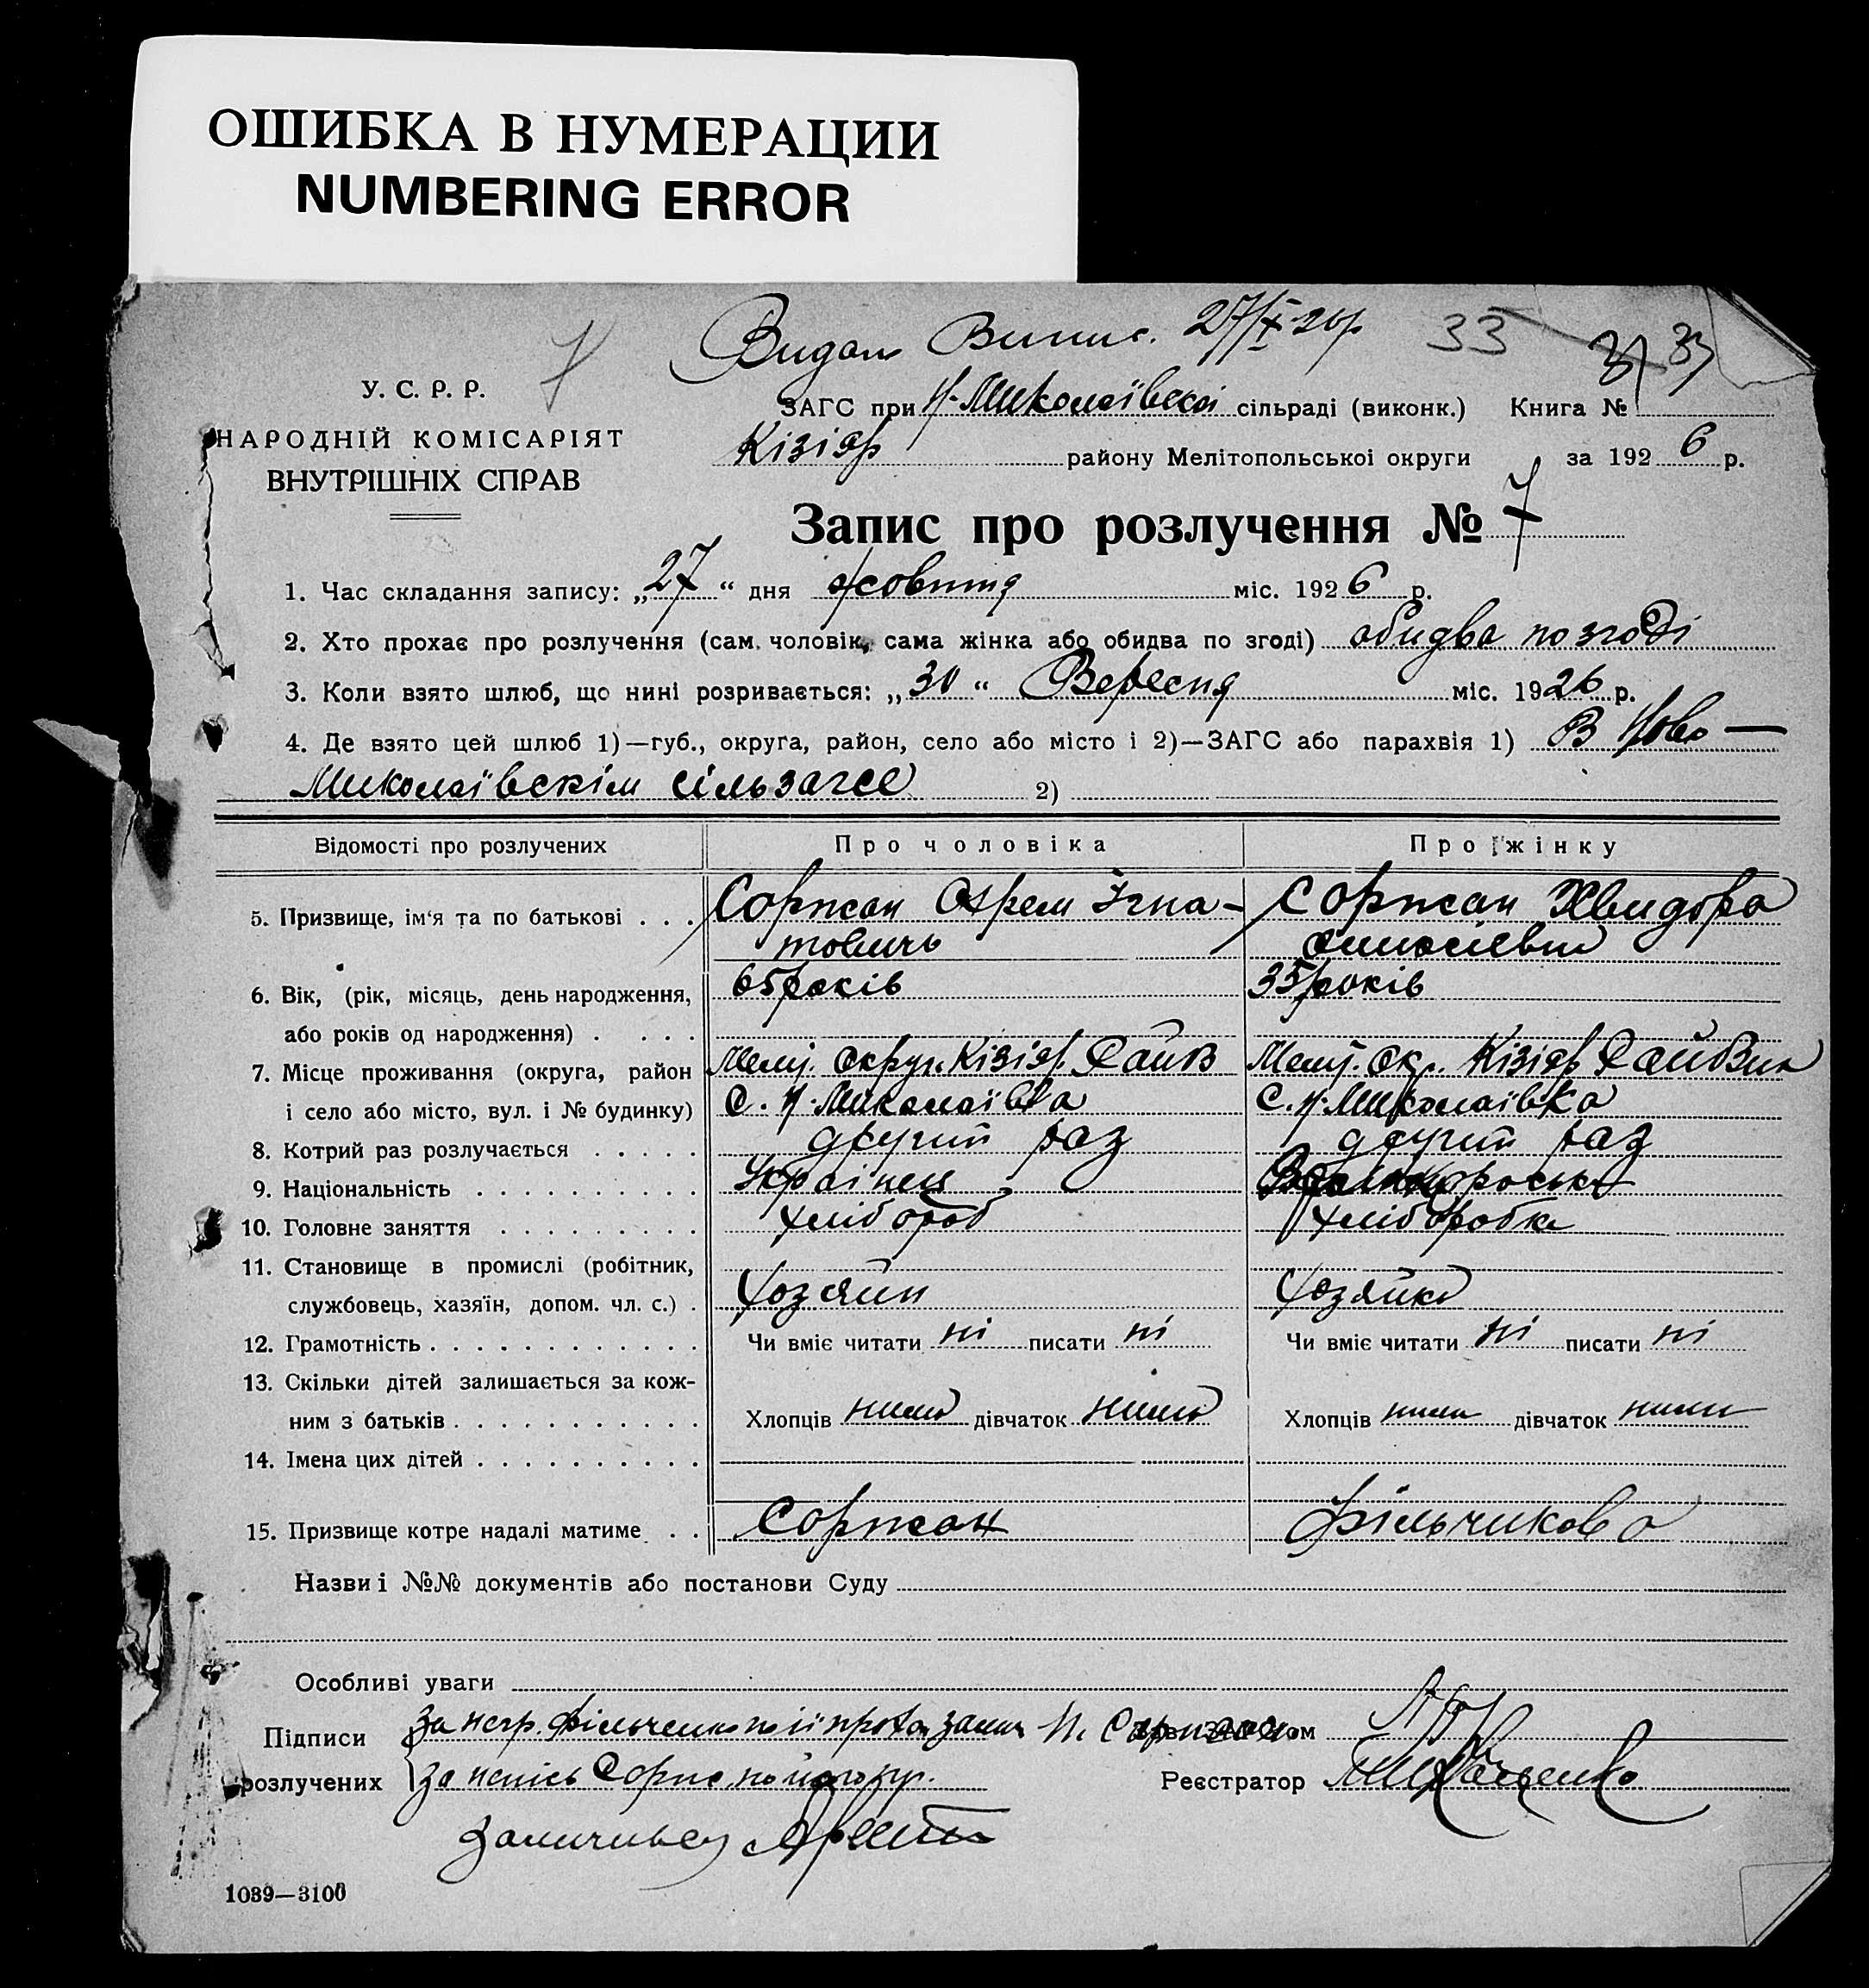 ОШИБКА В НУМЕРАЦИИ
NUMBERING ERROR
Видан Випис. 27/X 26р 33 33
У. С. Р. Р.
7
ЗАГС при Н-Миколаївскої сільраді (виконк.) Книга №
НАРОДНІЙ КОМІСАРІЯТ
ВНУТРІШНІХ СПРАВ
Кізіяр району Мелітопольської округи за 1926 р.
Запис про розлучення № 7
1. Час складання запису: „27“ дня жовтня міс. 1926 р.
2. Хто прохає про розлучення (сам чоловік, сама жінка або обидва по згоді) обидва по згоді
3. Коли взято шлюб, що нині розривається: „30“ Вересня міс. 1926 р.
4. Де взято цей шлюб 1)—губ., округа, район, село або місто і 2)—ЗАГС або парахвія 1) В Ново—
Миколаївскім сільзагсе 2)
Відомості про розлучених Про чоловіка Про жінку
5. Призвище, ім‘я та по батькові . . . Соржан Ігна- Соржан Хвидора
товичь
6. Вік, (рік, місяць, день народження, 65 років 35 років
або років од народження) . . . .
7. Місце проживання (округа, район Мелі. округ. Кізіяр. Мелі. ок. Кізіяр
і село або місто, вул. і № будинку) С. Н-Миколаівка С. Н-Миколаівка
8. Котрий раз розлучається . . . . . другий раз другий раз
9. Національність . . . . . . . . . . Українец
10. Головне заняття . . . . . . . . . хлібороб хліборобка
11. Становище в промислі (робітник,
службовець, хазяїн, допом. чл. с.) . Хозяин Хозяйка
12. Грамотність . . . . . . . . . . . . Чи вміє читати ні писати ні Чи вміє читати ні писати ні
13. Скільки дітей залишається за кож-
ним з батьків . . . . . . . . . . . Хлопців нима дівчаток нима Хлопців нима дівчаток нима
14. Імена цих дітей . . . . . . . . . .
15. Призвище котре надалі матиме . . Соржан Фільчикова
Назви і №№ документів або постанови Суду
Особливі уваги
Підписи За негр.
розлучених За Реєстратор
1039—3100